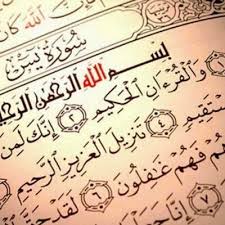 ٱللَّهَ كَانَ
سُورَةُ يسٓ
بِسْمِ ٱللَّهِ ٱلرَّحْمَٰنِ
١ وَٱلْقُرْءَانِ ٱلْحَكِيمِ ٢ إِنَّكَ لَمِنَ
مُّسْتَقِيمٍ ٤ تَنزِيلَ ٱلْعَزِيزِ ٱلرَّحِيمِ
فَهُمْ غَٰفِلُونَ ٦ لَقَدْ
٧ إِنَّا